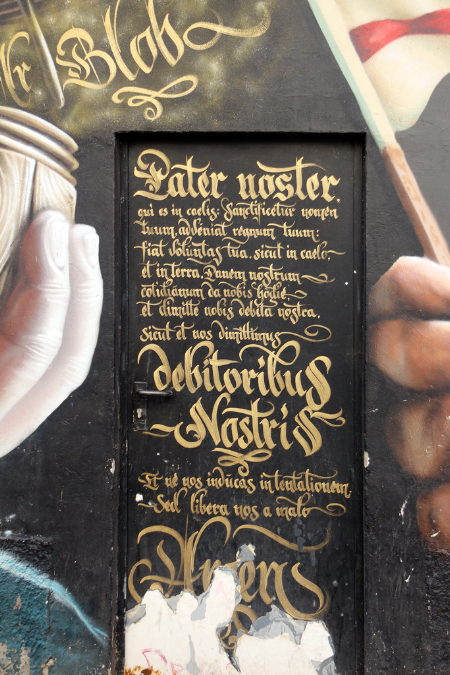 Mr Blob
Pater noster,
qui es in caelis: Sanctificetur nomen
tuum, adveniat regnum tuum:
fiat voluntas tua, sicut in caelo,
et in terra. Panem nostrum
cotidianum da nobis hodie,
et dimitte nobis debita nostra,
Sicut et nos dimittimus
debitoribus
Nostris
Et ne nos inducas in tentationem,
Sed libera nos a malo
Amen